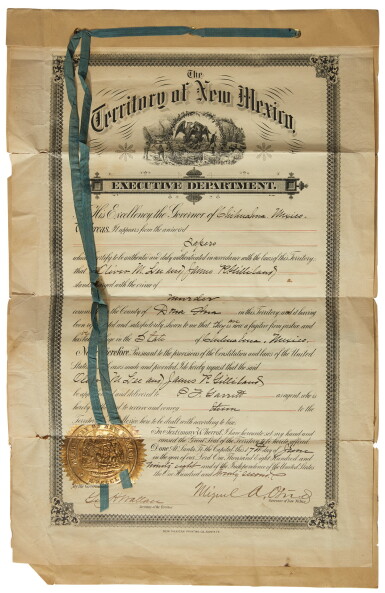 The
Territory of New Mexico,
EXECUTIVE DEPARTMENT.
His Excellency, the Governor of Chihuahua Mexico.
Whereas, It appears from the annexed
papers
which I certify to be authentic and duly authenticated in accordance with the laws of this Territory
that Oliver M. Lee and James R. Gilliland
stand charged with the crime of
Murder
committed in the County of Dona Ana in this Territory, and it having
been represented and satisfactorily shown to me that They are now a fugitive from justice, and
has taken refuge in the State of Chihuahua, Mexico.
Now Therefore, Pursuant to the provisions of the Constitution and laws of the United
States in such cases made and provided, I do hereby request that the said
Oliver M. Lee and James R. Gilliland
be apprehended and delivered to P. F. Garrett as agent who is
hereby authorized to receive and convey them to the
Territory of New Mexico here to be dealt with according to law.
In Testimony Whereof, I have hereunto set my hand and
caused the Great Seal of the Territory to be hereto affixed.
Done At Santa Fe, the Capital, this day of June
in the year of our Lord One Thousand Eight Hundred and
ninety eight and of the Independence of the United States
the One Hundred and twenty second.
By the Governor
Wallace
Miguel A. Otero
Secretary of the Territory.
Governor of New Mexico.